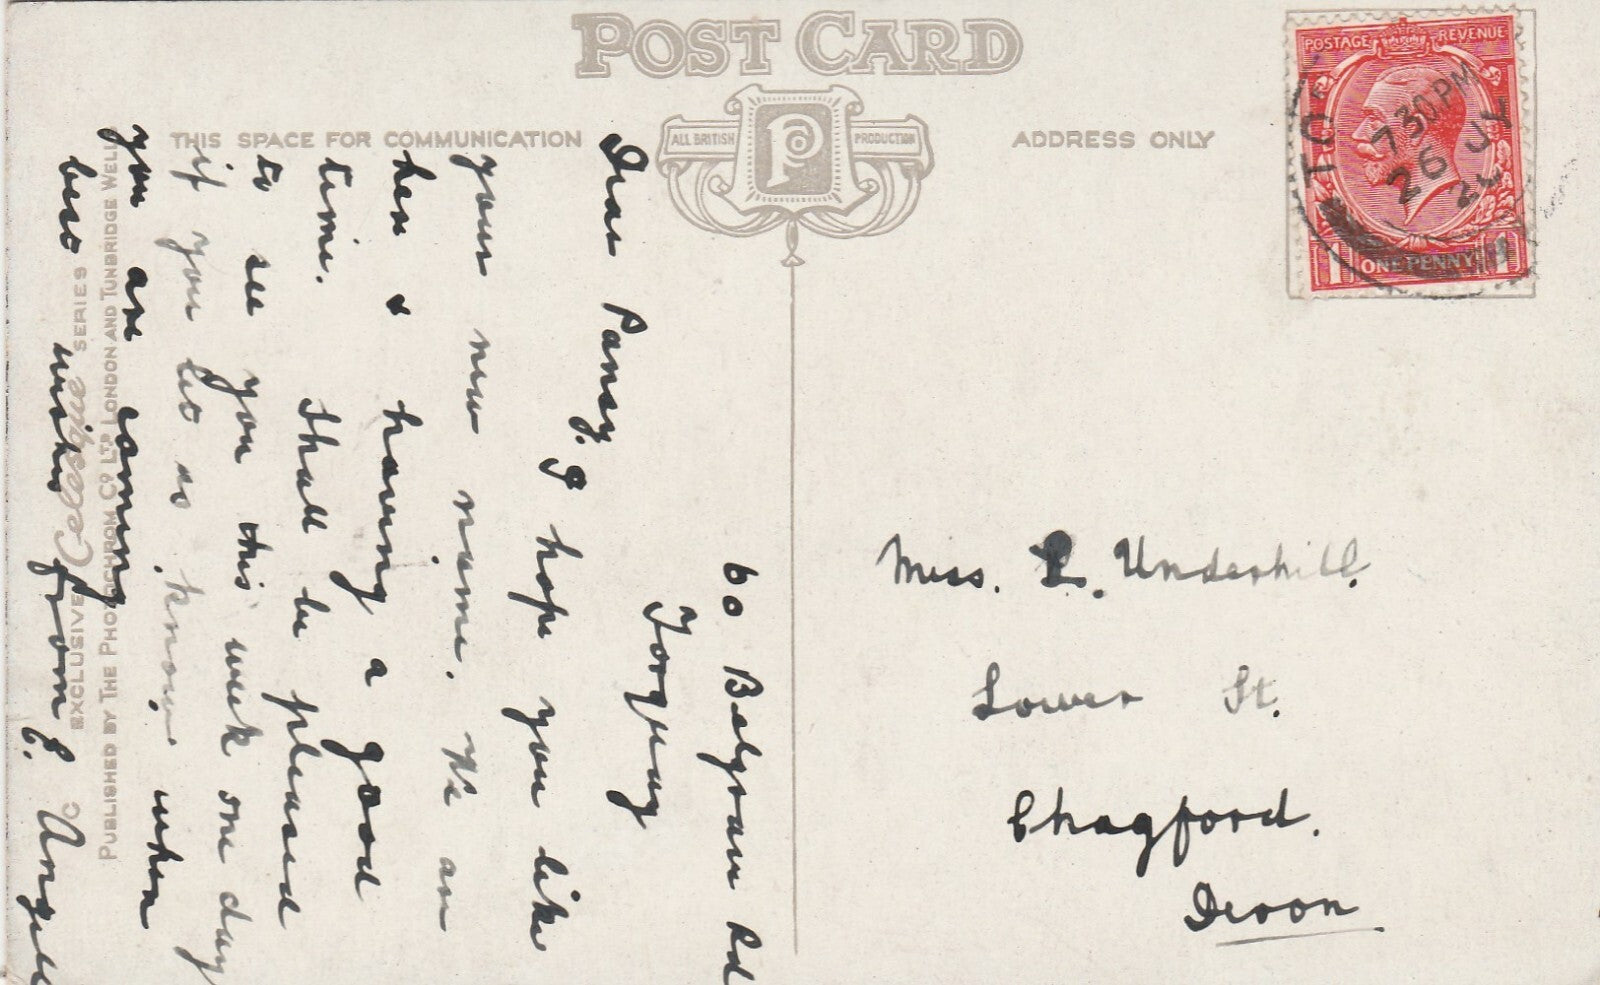 POST CARD
THIS SPACE FOR COMMUNICATION
ALL BRITISH
PRODUCTION
ADDRESS ONLY
POSTAGE
REVENUE
7 30 PM
26 JY
ONE PENNY
60 Belgrave Rd
Torquay
Dear Pansy.
I hope you like
your new name. We are
here & having a good
time. Shall be pleased
to see you this week one day
if you let us know when
you are coming
best wishes from E. Angell
Miss. P. Underhill.
Lower St.
Chagford.
Devon
EXCLUSIVE Celesque SERIES
PUBLISHED BY THE PHOTOCHROM CO LTD LONDON AND TUNBRIDGE WELLS